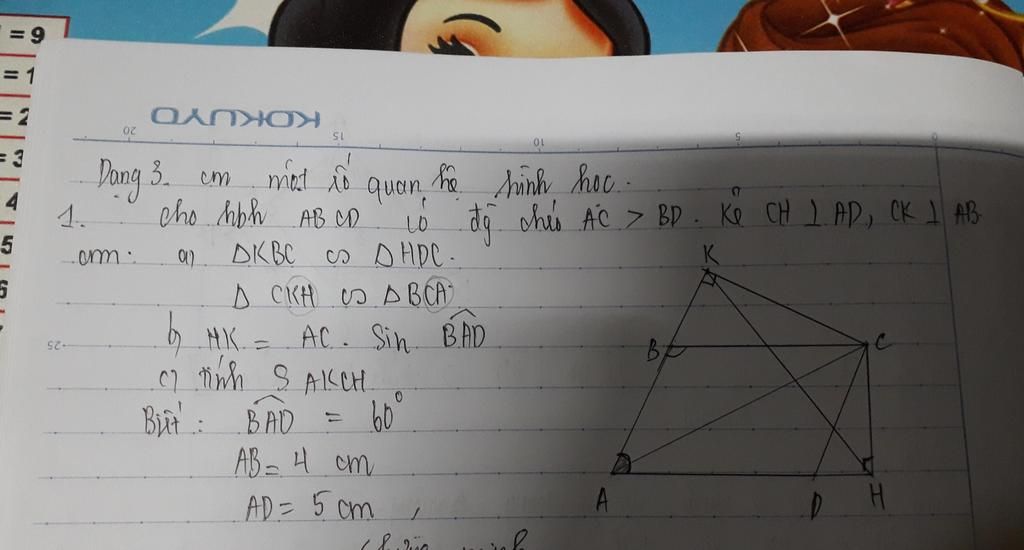 = 9
= 1
= 2
= 3
4
5
6
KOKUYO
20 15 10 5 0
Dạng 3. cm một số quan hệ hình học.
1. cho hbh ABCD có đg chéo AC > BD. Kẻ CH ⊥ AD, CK ⊥ AB
cm: a) ΔKBC ∽ ΔHDC.
Δ CKH ∽ ΔBCA
b) HK = AC. Sin BAD
25
c) tính S AKCH
Biết: BAD = 60°
AB = 4 cm
AD = 5 cm,
K
B
C
A
D
H